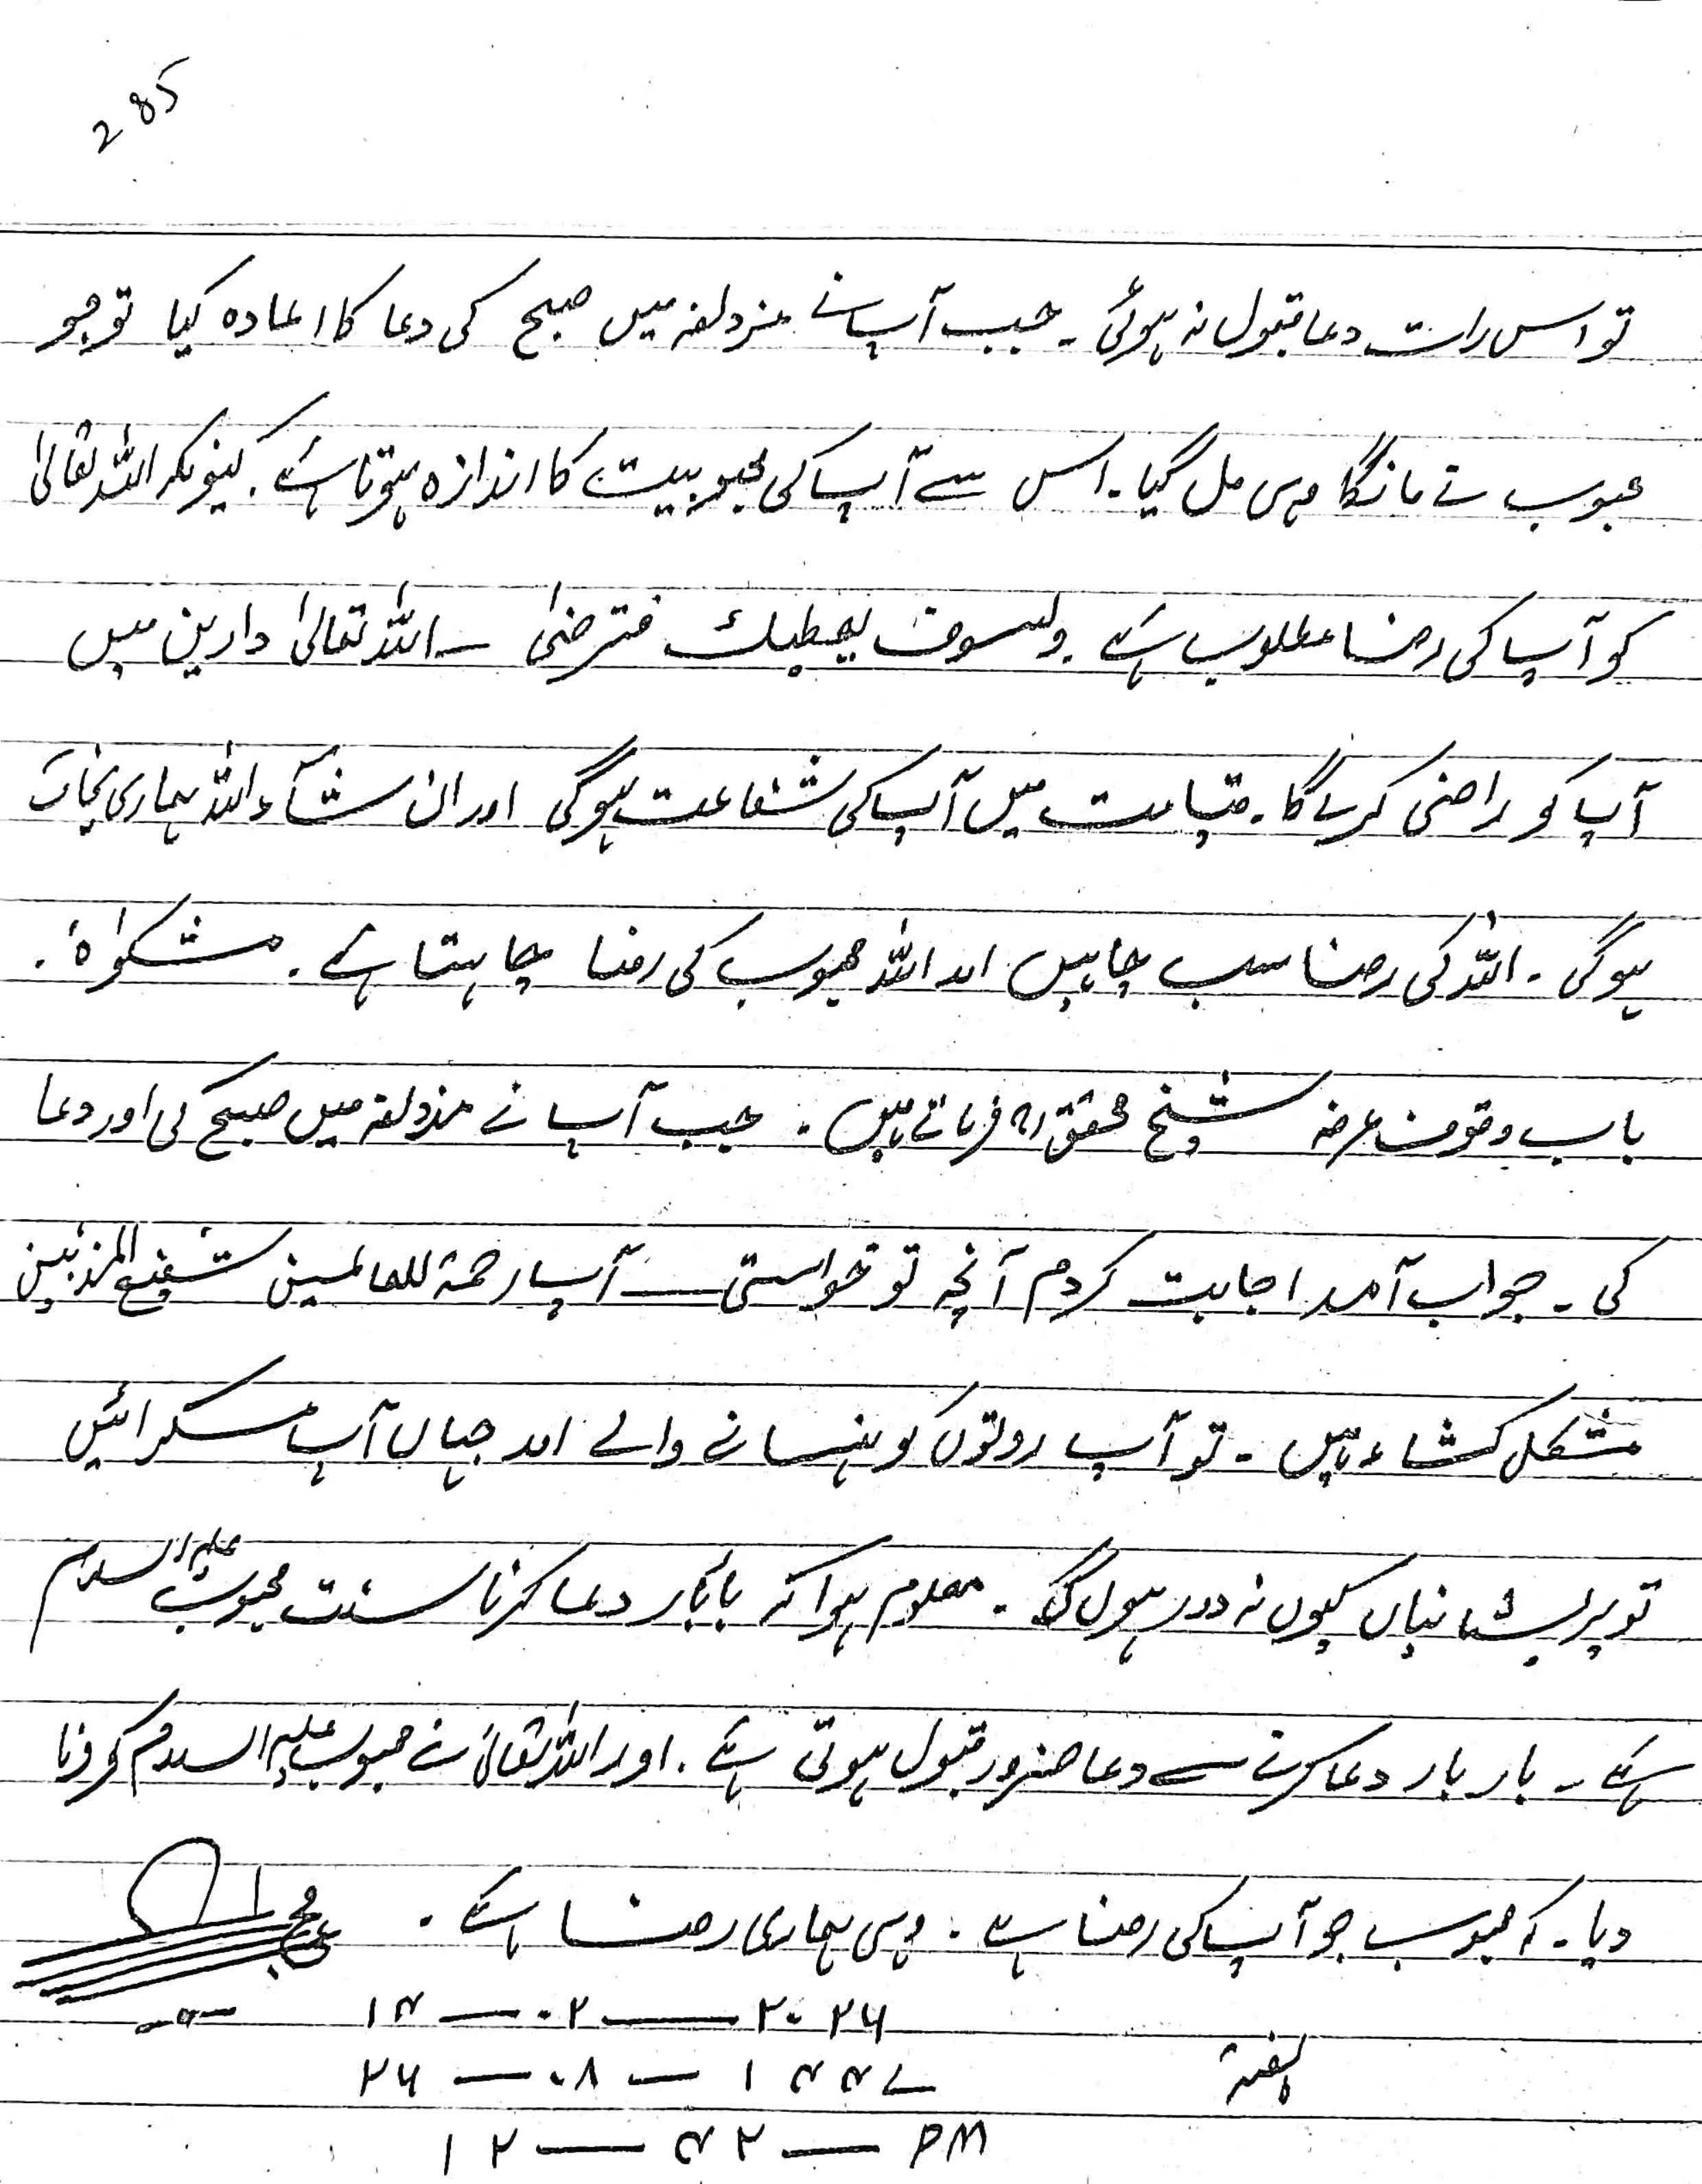 285
تو اس رات دعا قبول نہ ہوئی۔ جب آپ نے مزدلفہ میں صبح کی دعا کا اعادہ کیا تو جو
محبوب نے مانگا وہی مل گیا۔ اس سے آپ کی محبوبیت کا اندازہ ہوتا ہے۔ کیونکہ اللہ تعالیٰ
کو آپ کی رضا مطلوب ہے۔ ولسوف یعطیك فترضیٰ — اللہ تعالیٰ دارین میں
آپ کو راضی کرے گا۔ قیامت میں آپ کی شفاعت ہوگی اور ان شآء اللہ ہماری نجات
ہوگی۔ اللہ کی رضا سب چاہیں اور اللہ محبوب کی رضا چاہتا ہے۔ مشکوٰۃ۔
باب وقوف عرفہ شیخ محقق رح فرماتے ہیں۔ جب آپ نے مزدلفہ میں صبح کی اور دعا
کی۔ جواب آمد اجابت کردم آنچہ تو خواستی — آپ رحمۃ للعالمین شفیع المذنبین
مشکل کشاء ہیں۔ تو آپ روتوں کو ہنسانے والے اور جہاں آپ مسکرائیں
تو پریشانیاں کیوں نہ دور ہوں گی۔ معلوم ہوا کہ بابار دعا کرنا سنت محبوب علیہ السلام
ہے۔ بار بار دعا کرنے سے دعا ضرور قبول ہوتی ہے۔ اور اللہ تعالیٰ نے محبوب علیہ السلام کو فرما
دیا۔ کہ محبوب جو آپ کی رضا ہے۔ وہی ہماری رضا ہے۔
۱۴ — ۰۲ — ۲۰۲۶
ہفتہ ۲۶ — ۰۸ — ۱۴۴۷
۱۲ — ۴۲ — PM